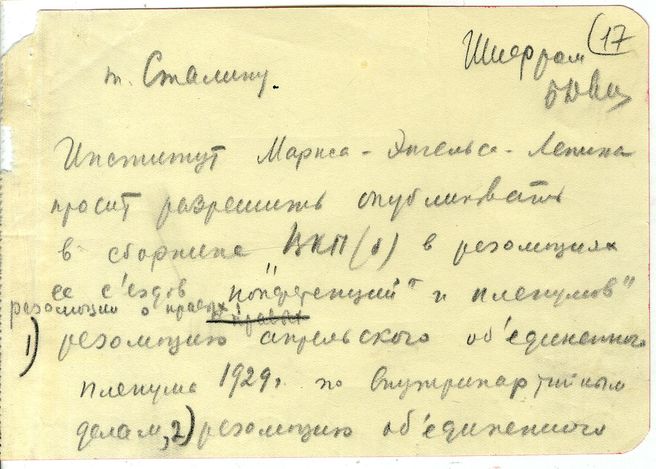 (17
Шифром
т. Сталину.
Институт Маркса-Энгельса-Ленина
просит разрешить опубликовать
в сборнике "ВКП(б) в резолюциях
ее с'ездов, конференций" и пленумов"
резолюции о правых
1) резолюцию апрельского об'единенного
пленума 1929г. по внутрипартийным
делам, 2) резолюцию об'единенного